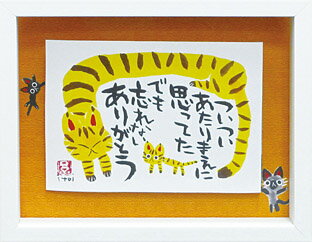 ついつい
あたりまえに
思ってた
でも
忘れない
ありがとう